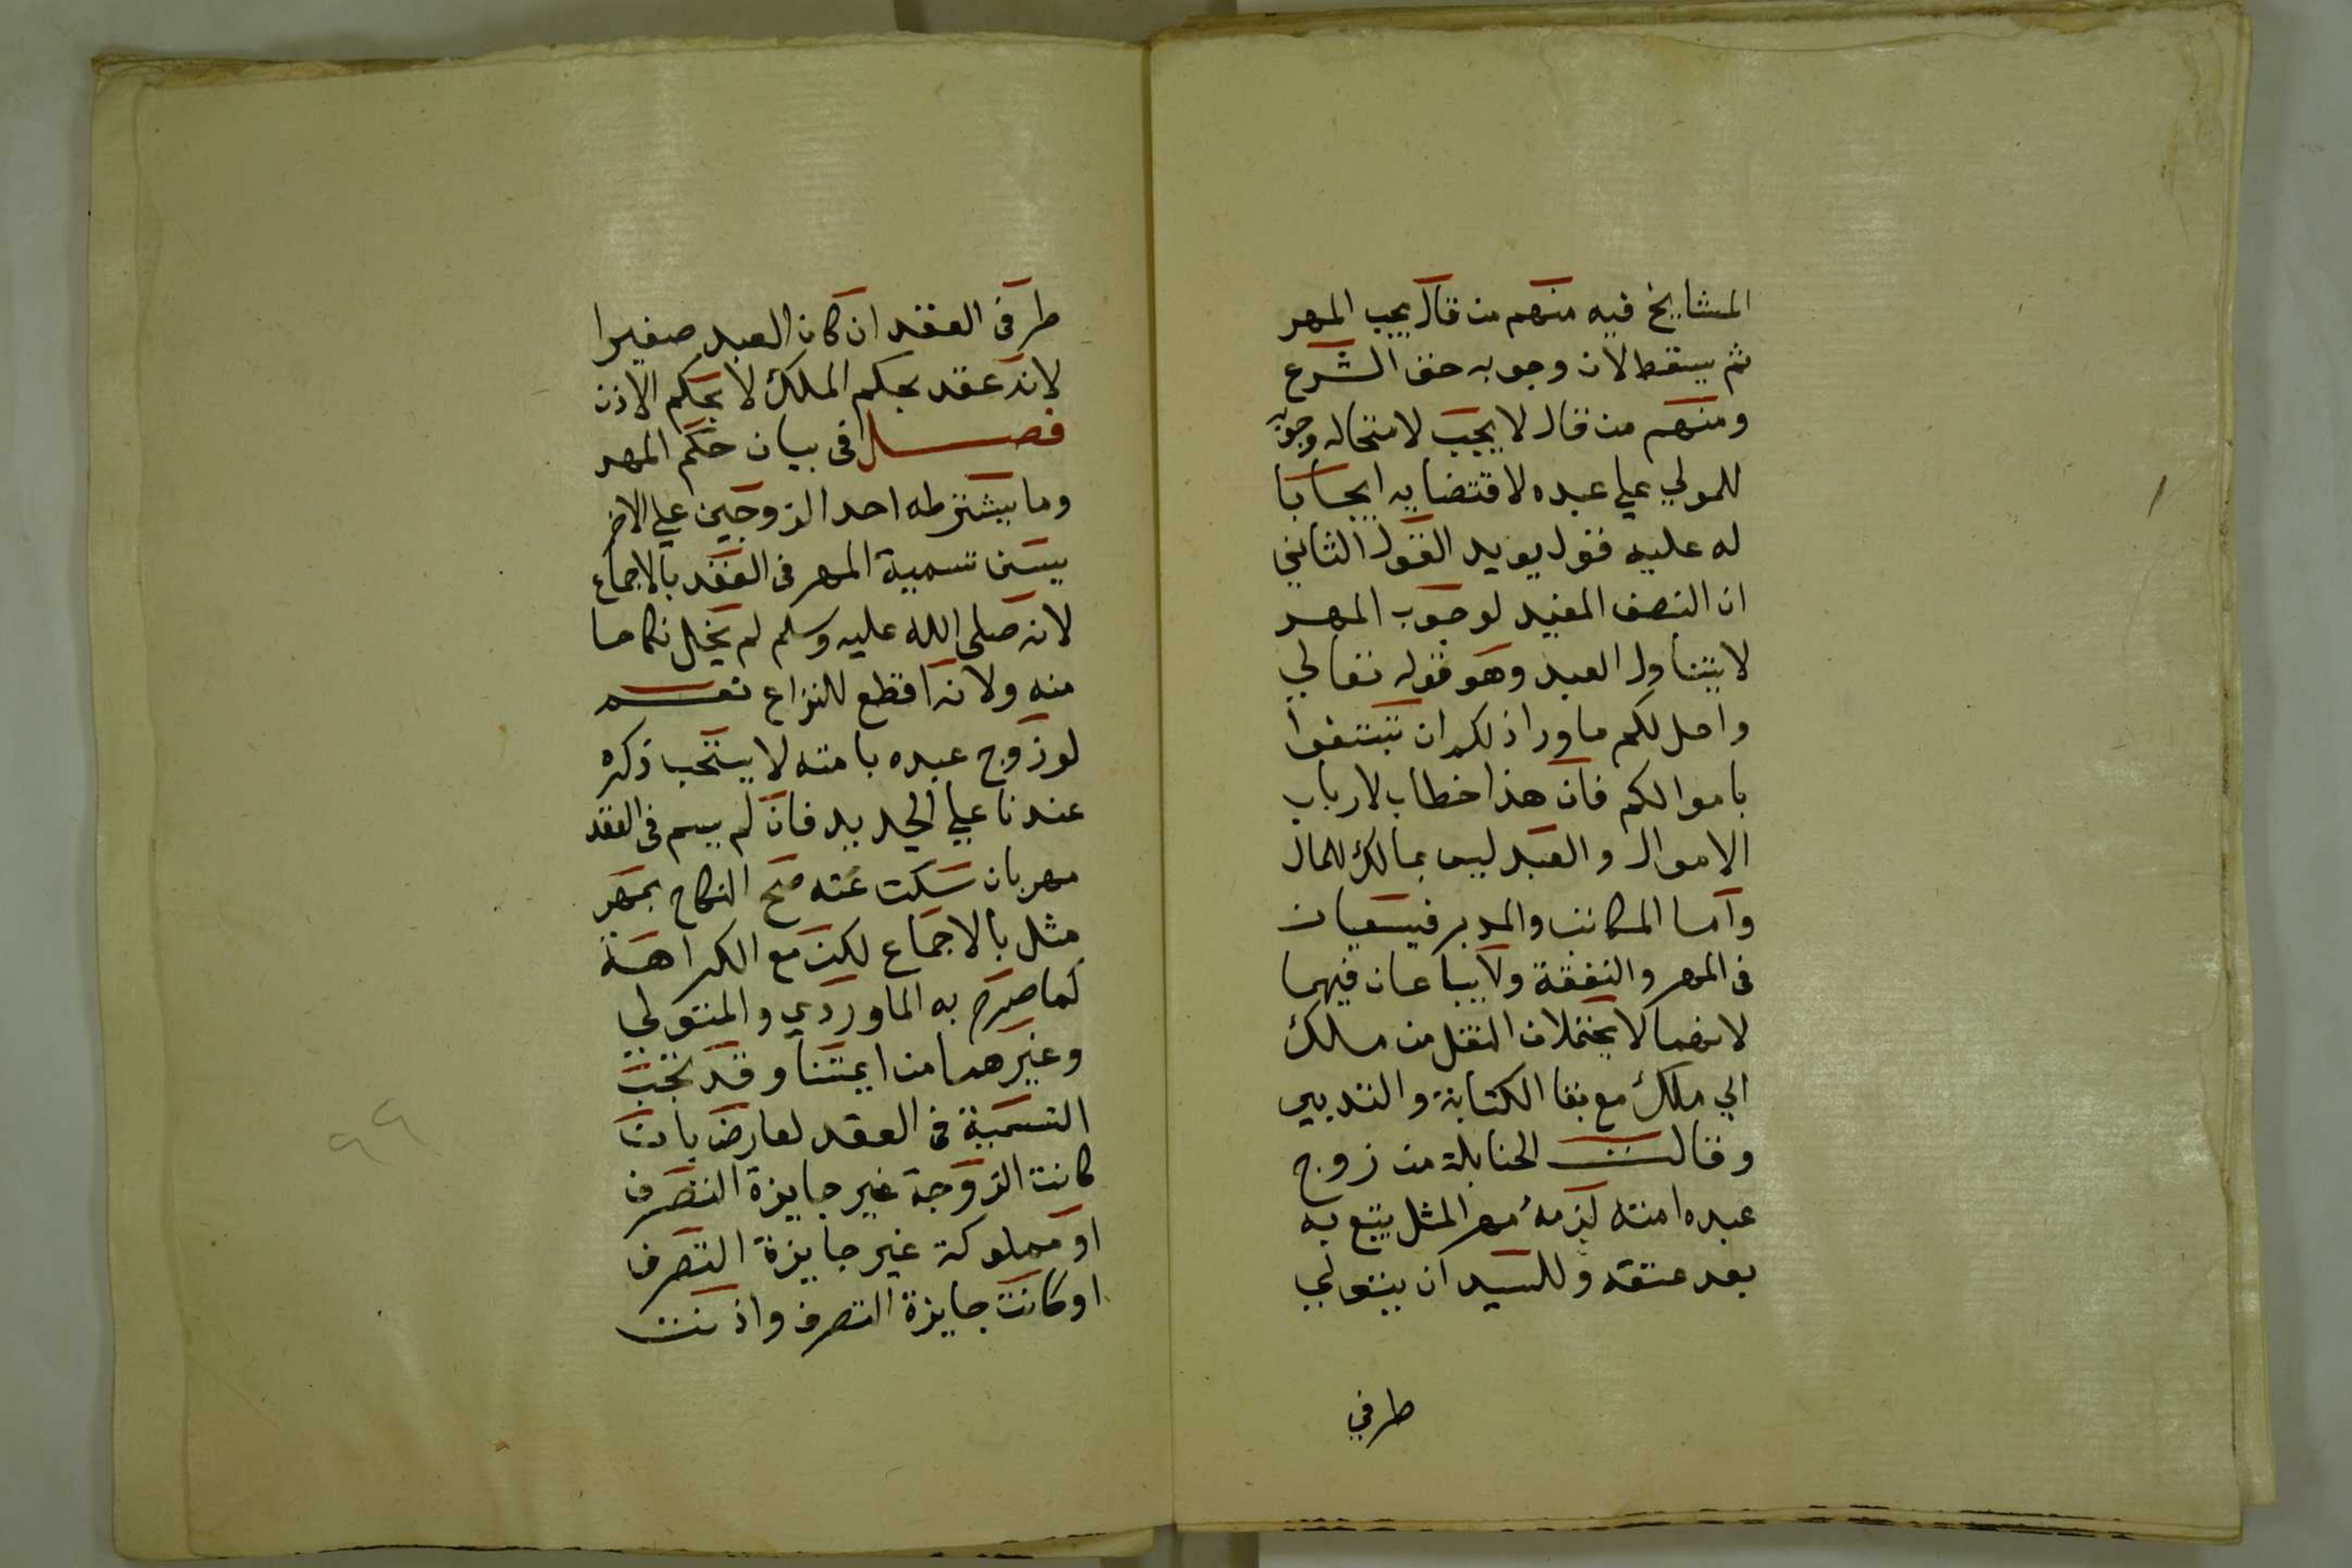 المشايخ فيه منهم من قال يجب المهر
ثم يسقط لان وجوبه حق الشرع
ومنهم من قال لا يجب لاستحاله وجوبه
للمولي علي عبده لاقتضايه ايجابا
له عليه قول يويد القول الثاني
ان النص المفيد لوجوب المهر
لا يتناول العبد وهو قوله تعالي
واحل لكم ما ورا ذلكم ان تبتغوا
باموالكم فان هذا خطاب لارباب
الاموال والعبد ليس بمالك للمال
واما المكاتب والمدبر فيسعيان
في المهر والنفقة ولا يباعان فيهما
لانهما لا يحتملان النقل من ملك
الي ملك مع بقا الكتابة والتدبير
وقالت الحنابلة من زوج
عبده امته لزمه مهر المثل يتبع به
بعد عتقه وللسيد ان يتولي
طرفي
طرفي العقد ان كان العبد صغيرا
لانه عقد بحكم الملك لا بحكم الاذن
فصل في بيان حكم المهر
وما يشترطه احد الزوجين علي الاخر
يسن تسمية المهر في العقد بالاجماع
لانه صلى الله عليه وسلم لم يخل نكاحا
منه ولانه اقطع للنزاع نعم
لو زوج عبده بامته لا يستحب ذكره
عندنا علي الجديد فان لم يسم في العقد
مهر بان سكت عنه صح النكاح بمهر
مثل بالاجماع لكن مع الكراهة
كما صرح به الماوردي والمتولي
وغيرهما من ايمتنا وقد تجب
التسمية في العقد لعارض بان
كانت الزوجة غير جايزة التصرف
او مملوكة غير جايزة التصرف
او كانت جايزة التصرف واذنت
٩٩